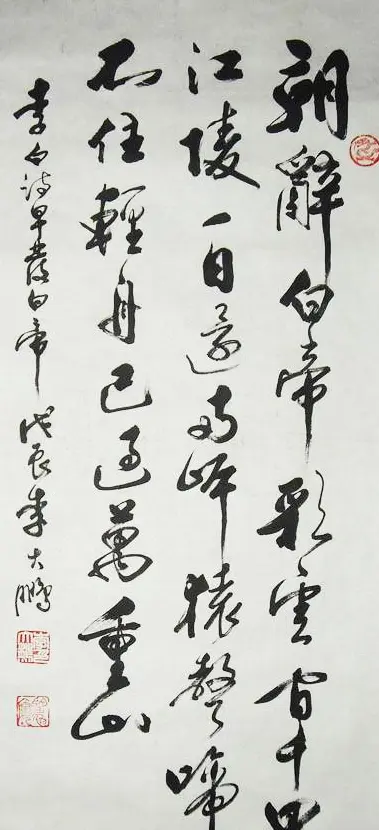 朝辭白帝彩雲間千里
江陵一日還兩岸猿聲啼
不住輕舟已過萬重山
李白詩早發白帝 戊辰李大鵬